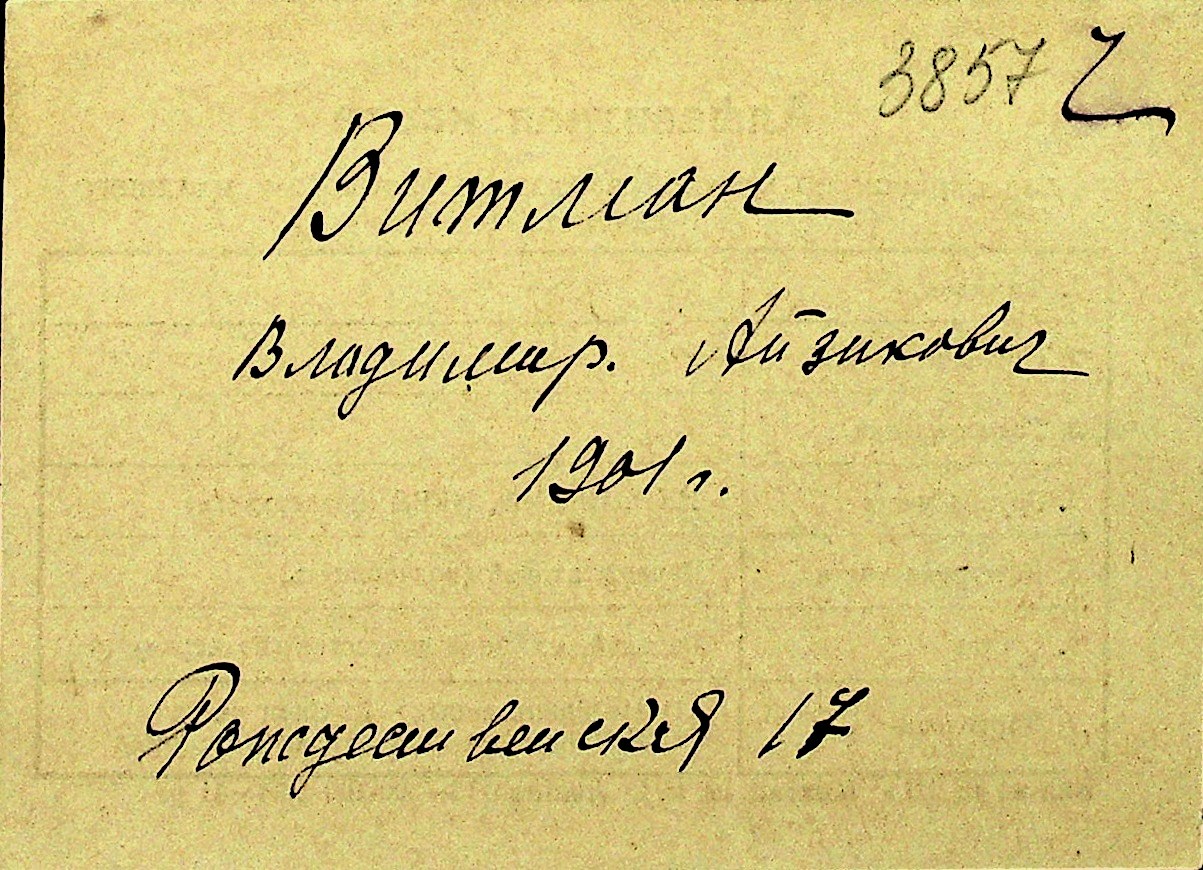 3857 г
Витман
Владимир. Айзикович
1901 г.
Рождественская 17